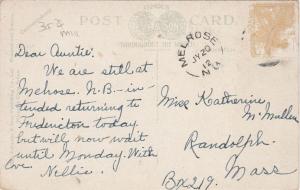 353
POST
MELROSE
JY 20
12
N.B.
Dear Auntie:
We are still at
Melrose N.B.- in-
tended returning to
Fredericton today
but will now wait
until Monday. With
love Nellie.
Miss Katherine
McMullen
Randolph.
Mass
Box 219.